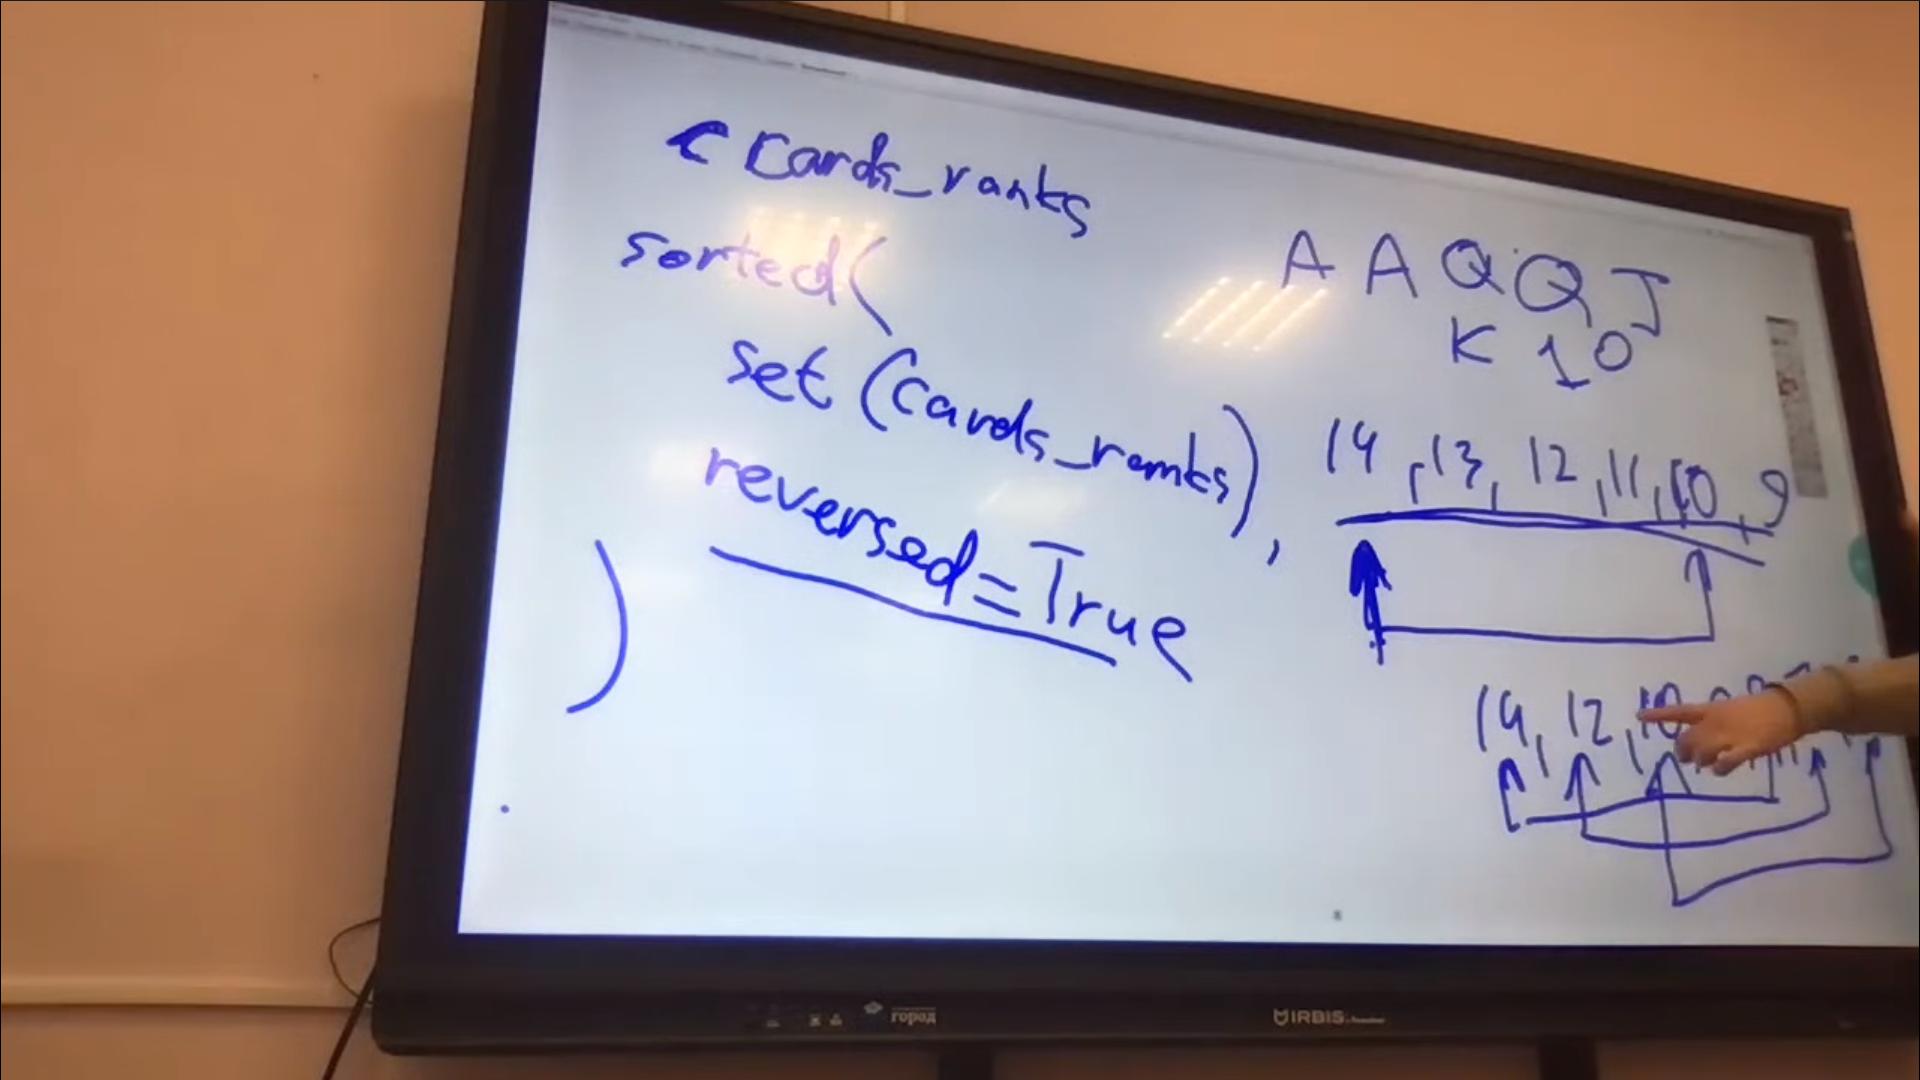 cards_ranks
sorted(
set (cards_ranks),
reversed=True
)
A A Q Q J
K 10
14, 13, 12, 11, 10, 9
14, 12, 10
город
IRBIS